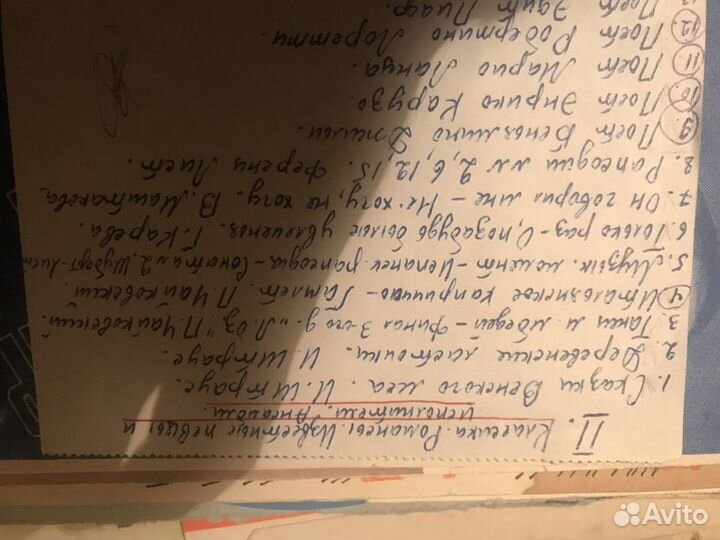 II. Классика. Романсы. Известные певцы и
исполнители. Ансамбли.
1. Сказки Венского леса. И. Штраус.
2. Деревенские ласточки. И. Штраус.
3. Танец м. лебедей - Финал 3-его д. "Л. оз." П. Чайковский.
4. Итальянское каприччио - Гамлет. П. Чайковский.
5. Музык. момент - Испанск. рапсодия - Соната м 2. Шуберт-Лист
6. Только раз - О, позабудь былые увлеченья. Г. Карева.
7. Он говорил мне - Не хочу, не хочу. В. Маштакова.
8. Рапсодии №№ 2, 6, 12, 15. Ференц Лист.
9. Поёт Беньямино Джильи.
10. Поёт Энрико Карузо.
11. Поёт Марио Ланца.
12. Поёт Робертино Лоретти.
Поёт Эдит Пиаф.
Avito